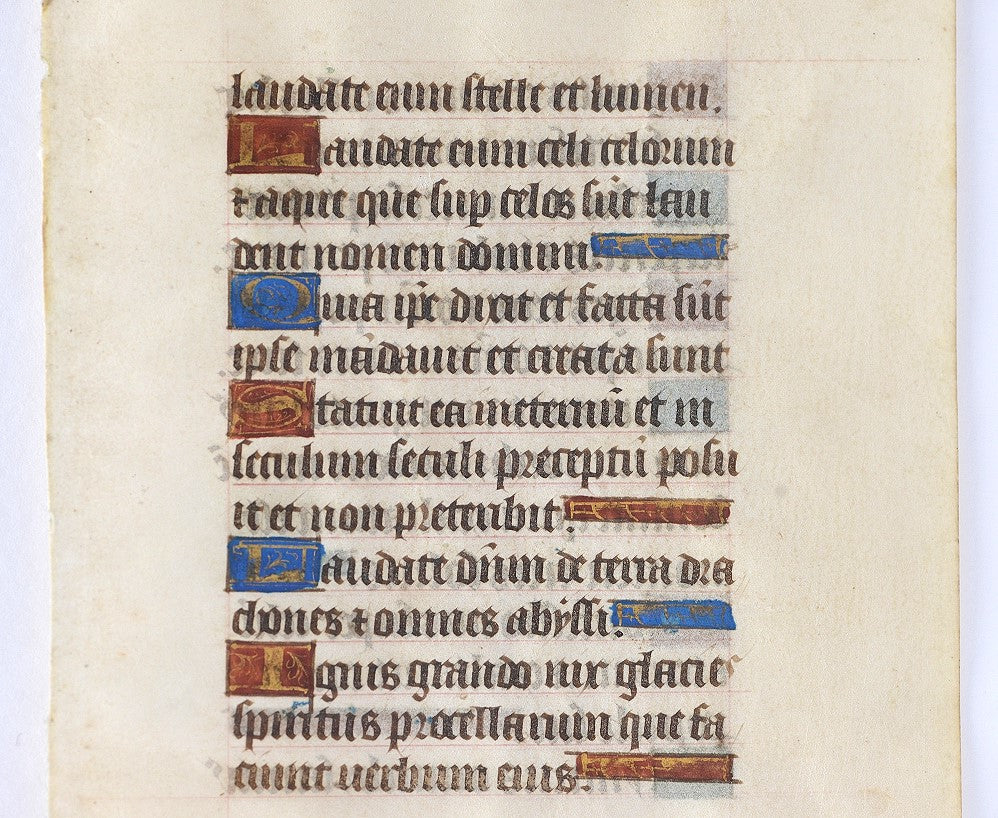 laudate eum stelle et lumen.
Laudate eum celi celorum
⁊ aque que sup celos sūt lau
dent nomen domini.
Quia ip̄e dixit et facta sūt
ipse mādauit et creata sunt
Statuit ea ineternū et in
seculum seculi preceptū posu
it et non preteribit.
Laudate dūm de terra dra
chones ⁊ omnes abyssi.
Ignis grando nix glacies
spiritus procellarum que fa
ciunt uerbum eius.